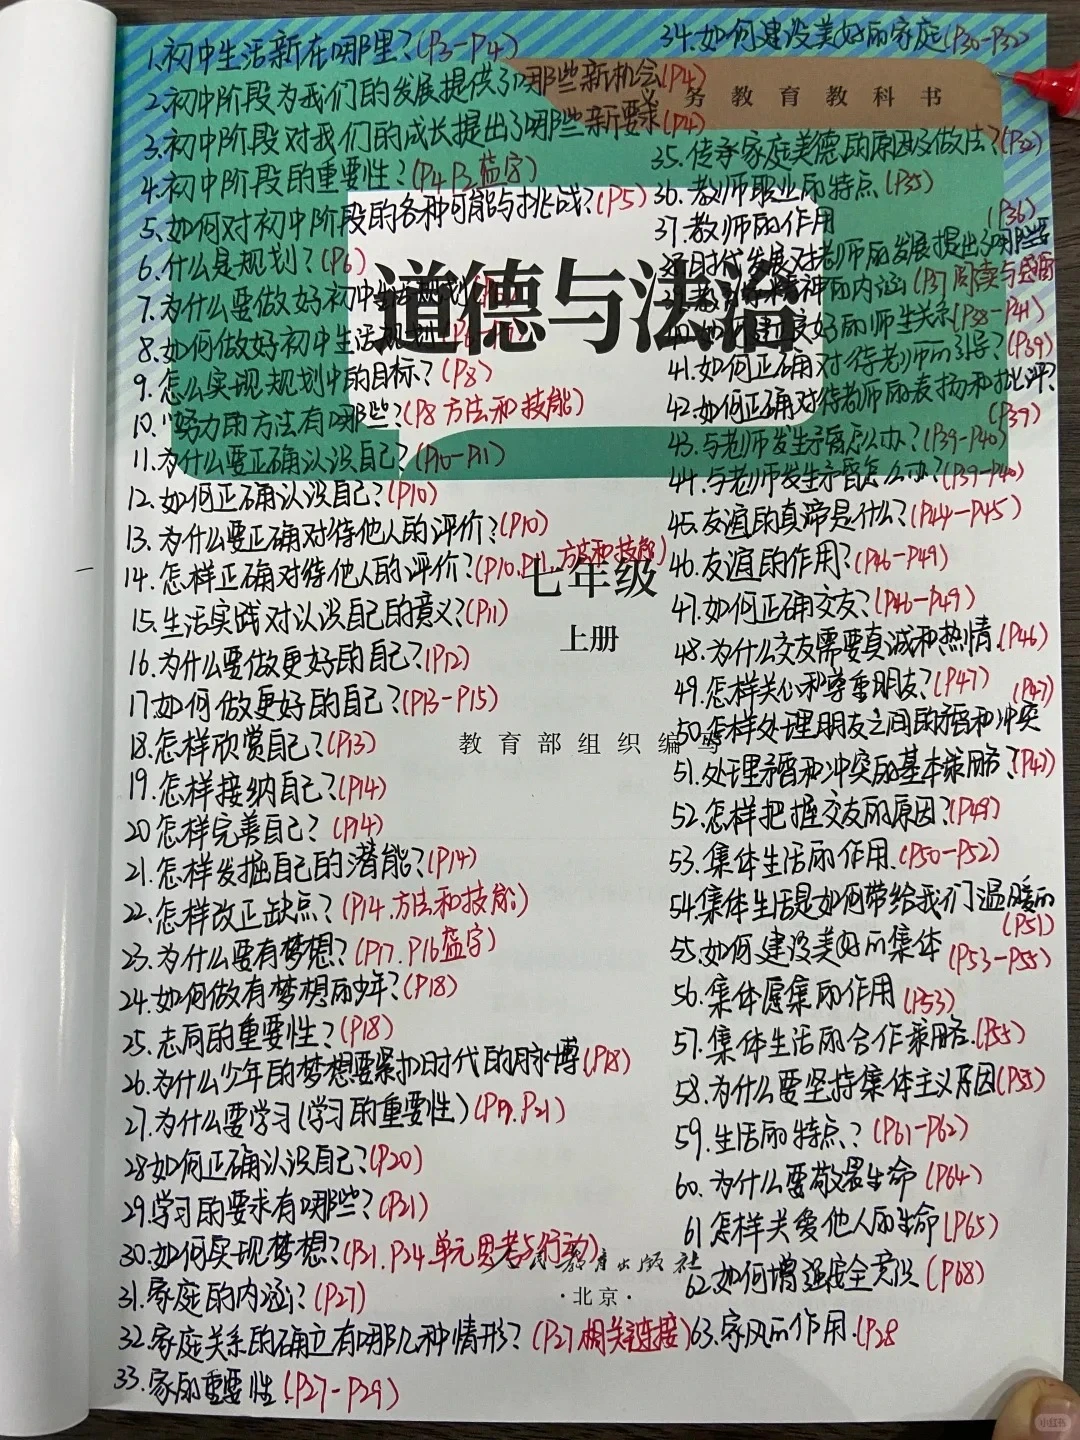 1.初中生活新在哪里?(P3-P4)
2.初中阶段为我们的发展提供了哪些新机会(P4)
3.初中阶段对我们的成长提出了哪些新要求(P4)
4.初中阶段的重要性?(P4 P3蓝字)
5.如何对初中阶段的各种可能与挑战?(P5)
6.什么是规划?(P6)
7.为什么要做好初中
8.如何做好初中生活规划
9.怎么实现规划中的目标?(P8)
10."努力的方法有哪些?(P8方法和技能)
11.为什么要正确认识自己?(P10-P11)
12.如何正确认识自己?(P10)
13.为什么要正确对待他人的评价?(P10)
14.怎样正确对待他人的评价?(P10.P11.方法和技能)
15.生活实践对认识自己的意义?(P11)
16.为什么要做更好的自己?(P12)
17.如何做更好的自己?(P13-P15)
18.怎样欣赏自己?(P13)
19.怎样接纳自己?(P14)
20怎样完善自己?(P14)
21.怎样发掘自己的潜能?(P14)
22.怎样改正缺点?(P14.方法和技能)
23.为什么要有梦想?(P17.P16蓝字)
24.如何做有梦想的少年?(P18)
25.志向的重要性?(P18)
26.为什么少年的梦想要紧扣时代的脉博(P18)
27.为什么要学习(学习的重要性)(P19.P21)
28如何正确认识自己?(P20)
29.学习的要求有哪些?(P21)
30.如何实现梦想?(P21.P24.单元思考与行动)
31.家庭的内涵?(P27)
32.家庭关系的确立有哪几种情形?(P27相关链接)
33.家的重要性(P27-P29)
34.如何建设美好的家庭(P30-P32)
义务教育教科书
35.传承家庭美德的原因及做法?(P32)
36.教师职业的特点(P35)
37.教师的作用
(P36)
时代发展对老师的发展提出了哪些要
精神的内涵(P37阅读与感悟
好的师生关系(P38-P41)
41.如何正确对待老师的引导?(P39)
42.如何正确对待老师的表扬和批评?
(P39)
43.与老师发生矛盾怎么办?(P39-P40)
44.与老师发生矛盾怎么办?(P39-P40)
45.友谊的真谛是什么?(P44-P45)
46.友谊的作用?(P46-P49)
47.如何正确交友?(P46-P49)
48.为什么交友需要真诚和热情.(P46)
49.怎样关心和尊重朋友?(P47)
50.怎样处理朋友之间的矛盾和冲突
(P47)
51.处理矛盾和冲突的基本策略?(P47)
52.怎样把握交友的原因?(P49)
53.集体生活的作用.(P50-P52)
54.集体生活是如何带给我们温暖的
(P51)
55.如何建设美好的集体(P53-P55)
56.集体愿景的作用(P53)
57.集体生活的合作策略.(P55)
58.为什么要坚持集体主义原因(P55)
59.生活的特点?(P61-P62)
60.为什么要敬畏生命(P64)
61怎样关爱他人的生命(P65)
62.如何增强安全意识(P68)
63.家风的作用.(P28
道德与法治
七年级
上册
教育部组织编写
教育出版社
·北京·
小红书